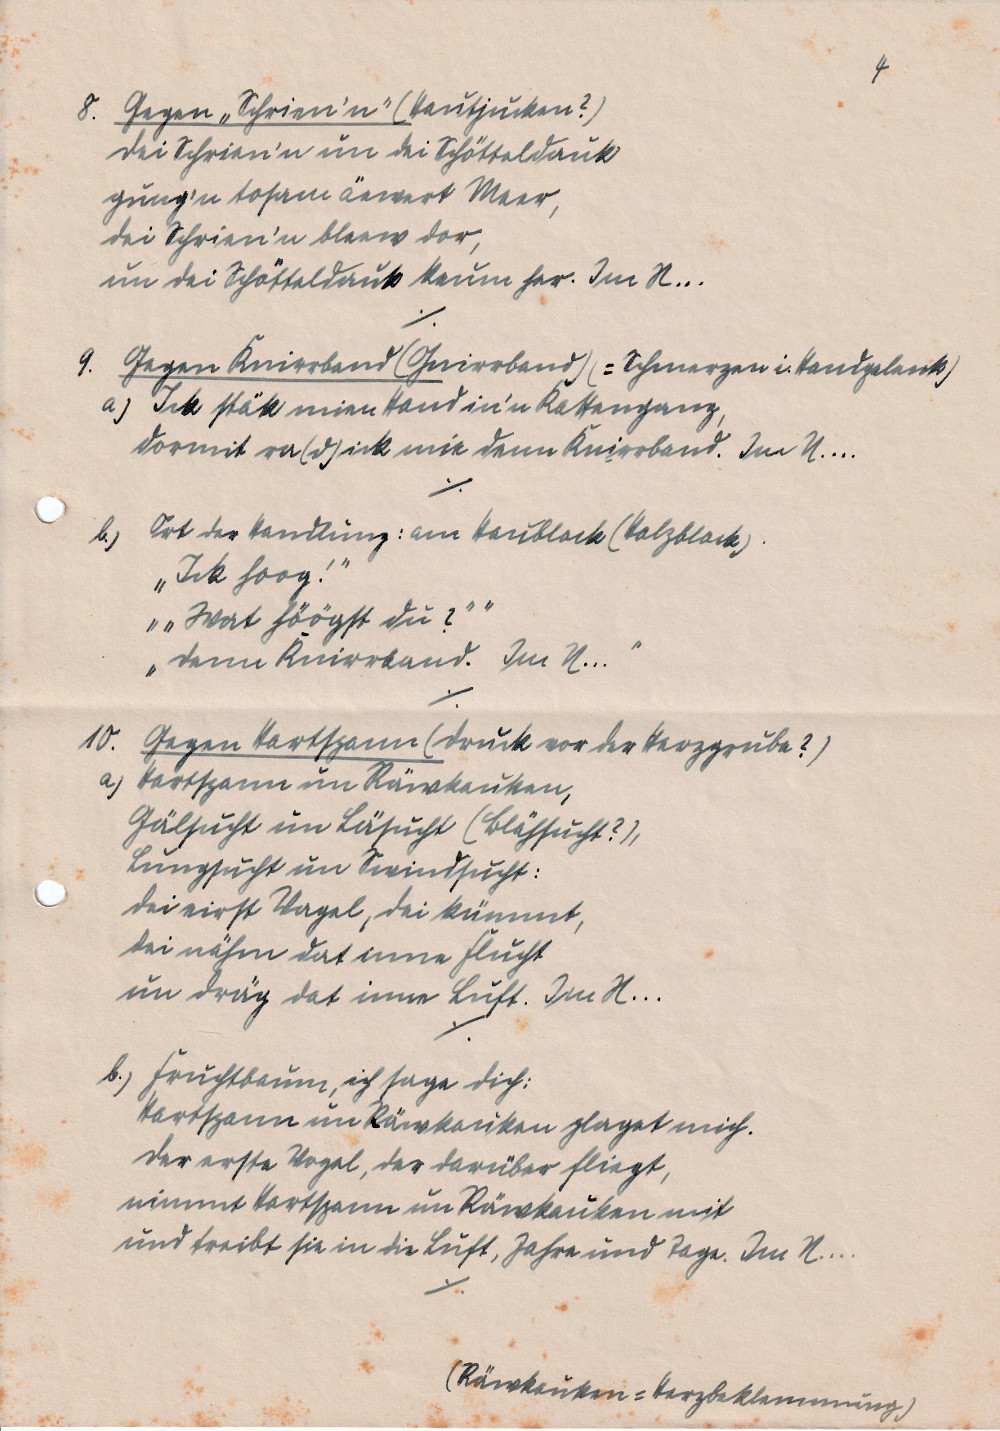 4
8. Gegen „Schrien'n" (Hautjucken?)
Dei Schrien'n un dei Schötteldauk
gung'n tosam äewert Meer,
dei Schrien'n bleew dor,
un dei Schötteldauk keum her. Im N...
./.
9. Gegen Knirrband (Gnirrband) (= Schmerzen i. Handgelenk)
a) Ick stäk mien Hand in'n Kattengang,
dormit ra(d) ick mie denn Knirrband. Im N....
./.
b.) Ort der Handlung: am Haublock (Holzblock).
„Ick hoog!"
„„Wat höögst du?""
„denn Knirrband. Im N..."
./.
10. Gegen Hartspann (Druck vor der Herzgrube?)
a) Hartspann un Räwkauken,
Gälsucht un Läsucht (Blähsucht?),
Lungsucht un Swindsucht:
dei eirst Vagel, dei kümmt,
dei nähm dat inne Flucht
un dräg dat inne Luft. Im N...
./.
b.) Fruchtbaum, ich sage dich:
Hartspann un Räwkauken plaget mich.
Der erste Vogel, der darüber fliegt,
nimmt Hartspann un Räwkauken mit
und treibt sie in die Luft, Jahre und Tage. Im N....
./.
(Räwkauken = Herzbeklemmung)